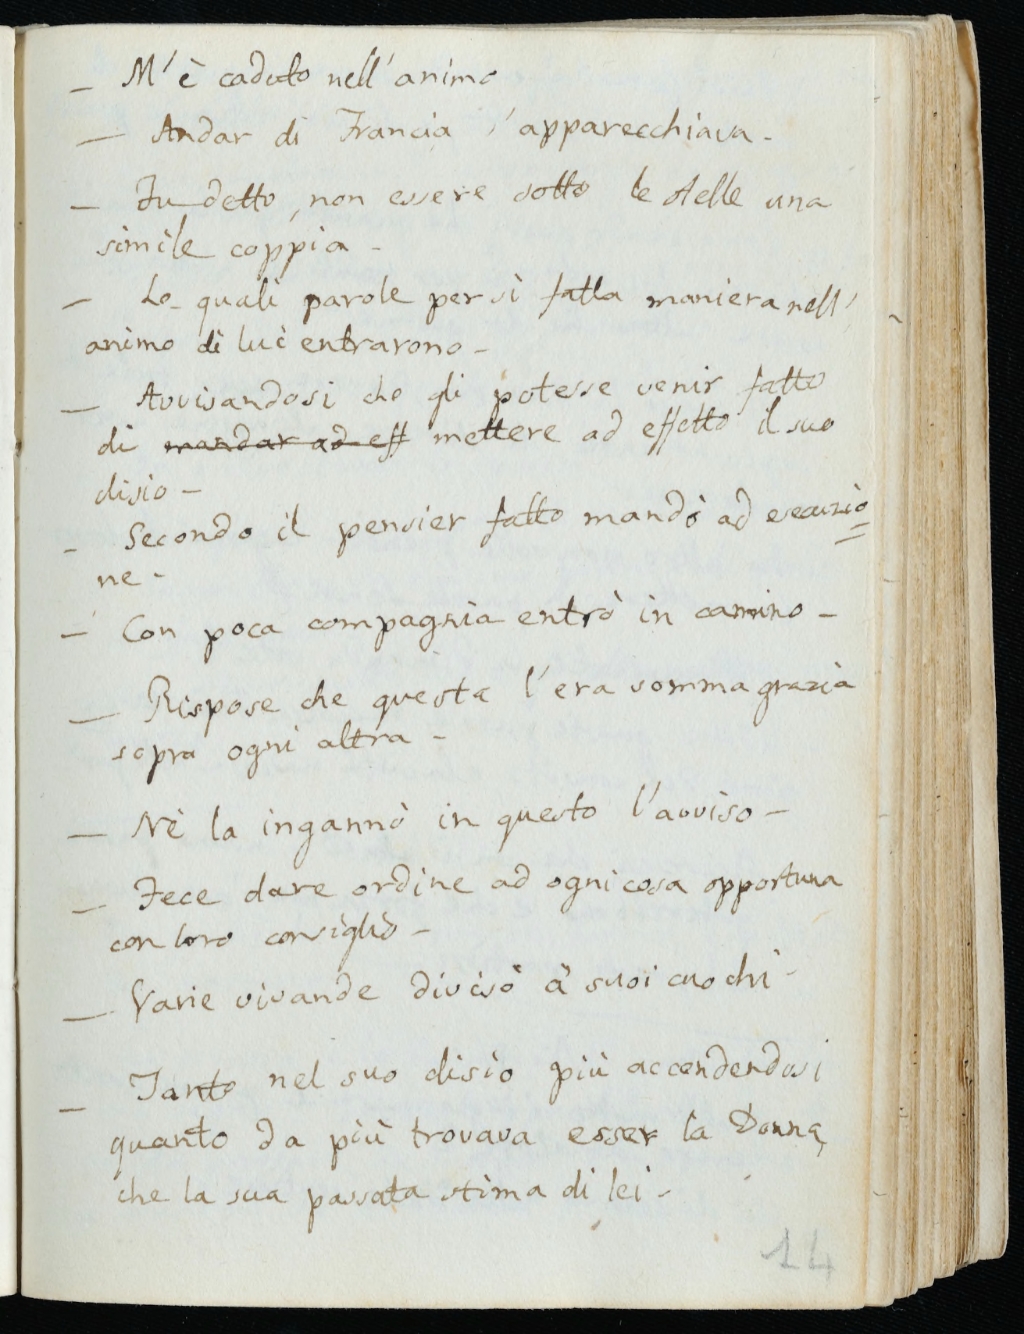 – M'è caduto nell'animo
– Andar di Francia s'apparecchiava –
– Fu detto, non essere sotto le stelle una
simile coppia –
– Le quali parole per sì fatta maniera nell'
animo di lui entrarono –
– Avvisandosi che gli potesse venir fatto
di mandar ad eff mettere ad effetto il suo
disio –
– Secondo il pensier fatto mandò ad esecuzio=
ne –
– Con poca compagnia entrò in camino –
– Rispose che questa l'era somma grazia
sopra ogni altra –
– Nè la ingannò in questo l'avviso –
– Fece dare ordine ad ogni cosa opportuna
con loro consiglio –
– Varie vivande divisò a' suoi cuochi –
– Tanto nel suo disio più accendendosi
quanto da più trovava esser la Donna,
che la sua passata stima di lei –
14